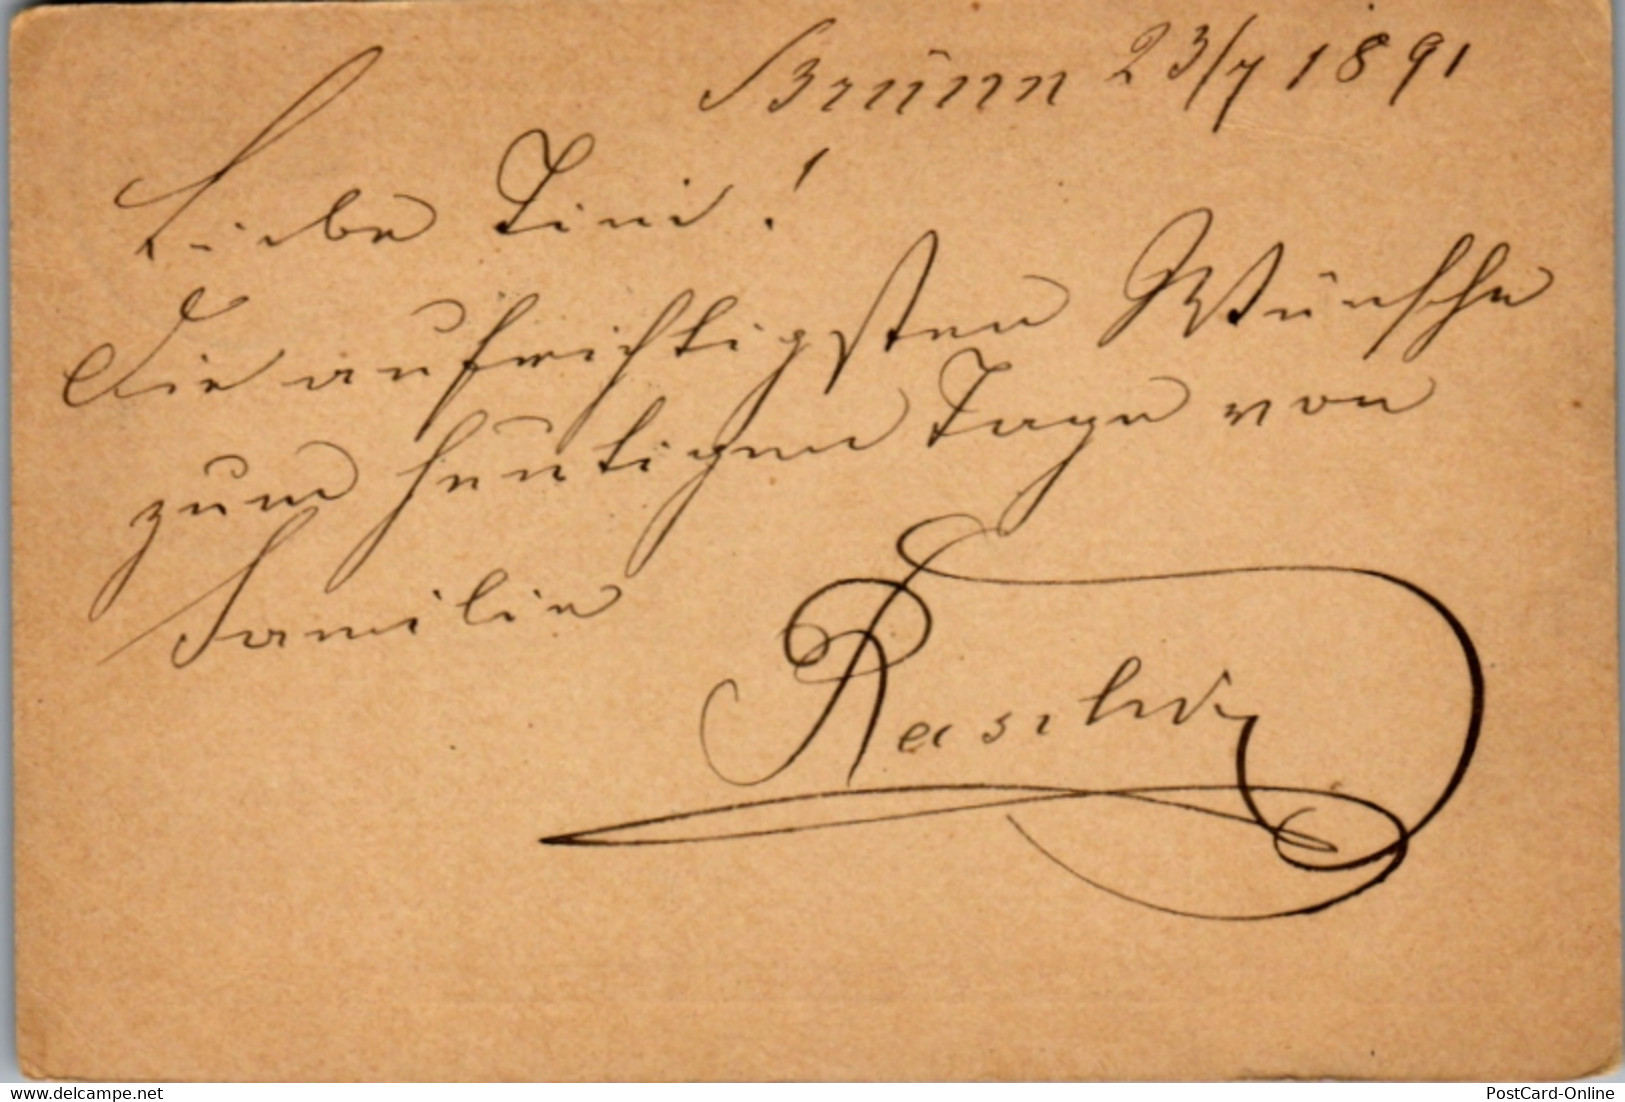 Brünn 23/7 1891
Liebe Tini!
Die aufrichtigsten Wünsche
zum heutigen Tage von
Familie
delcampe.net
PostCard-Online